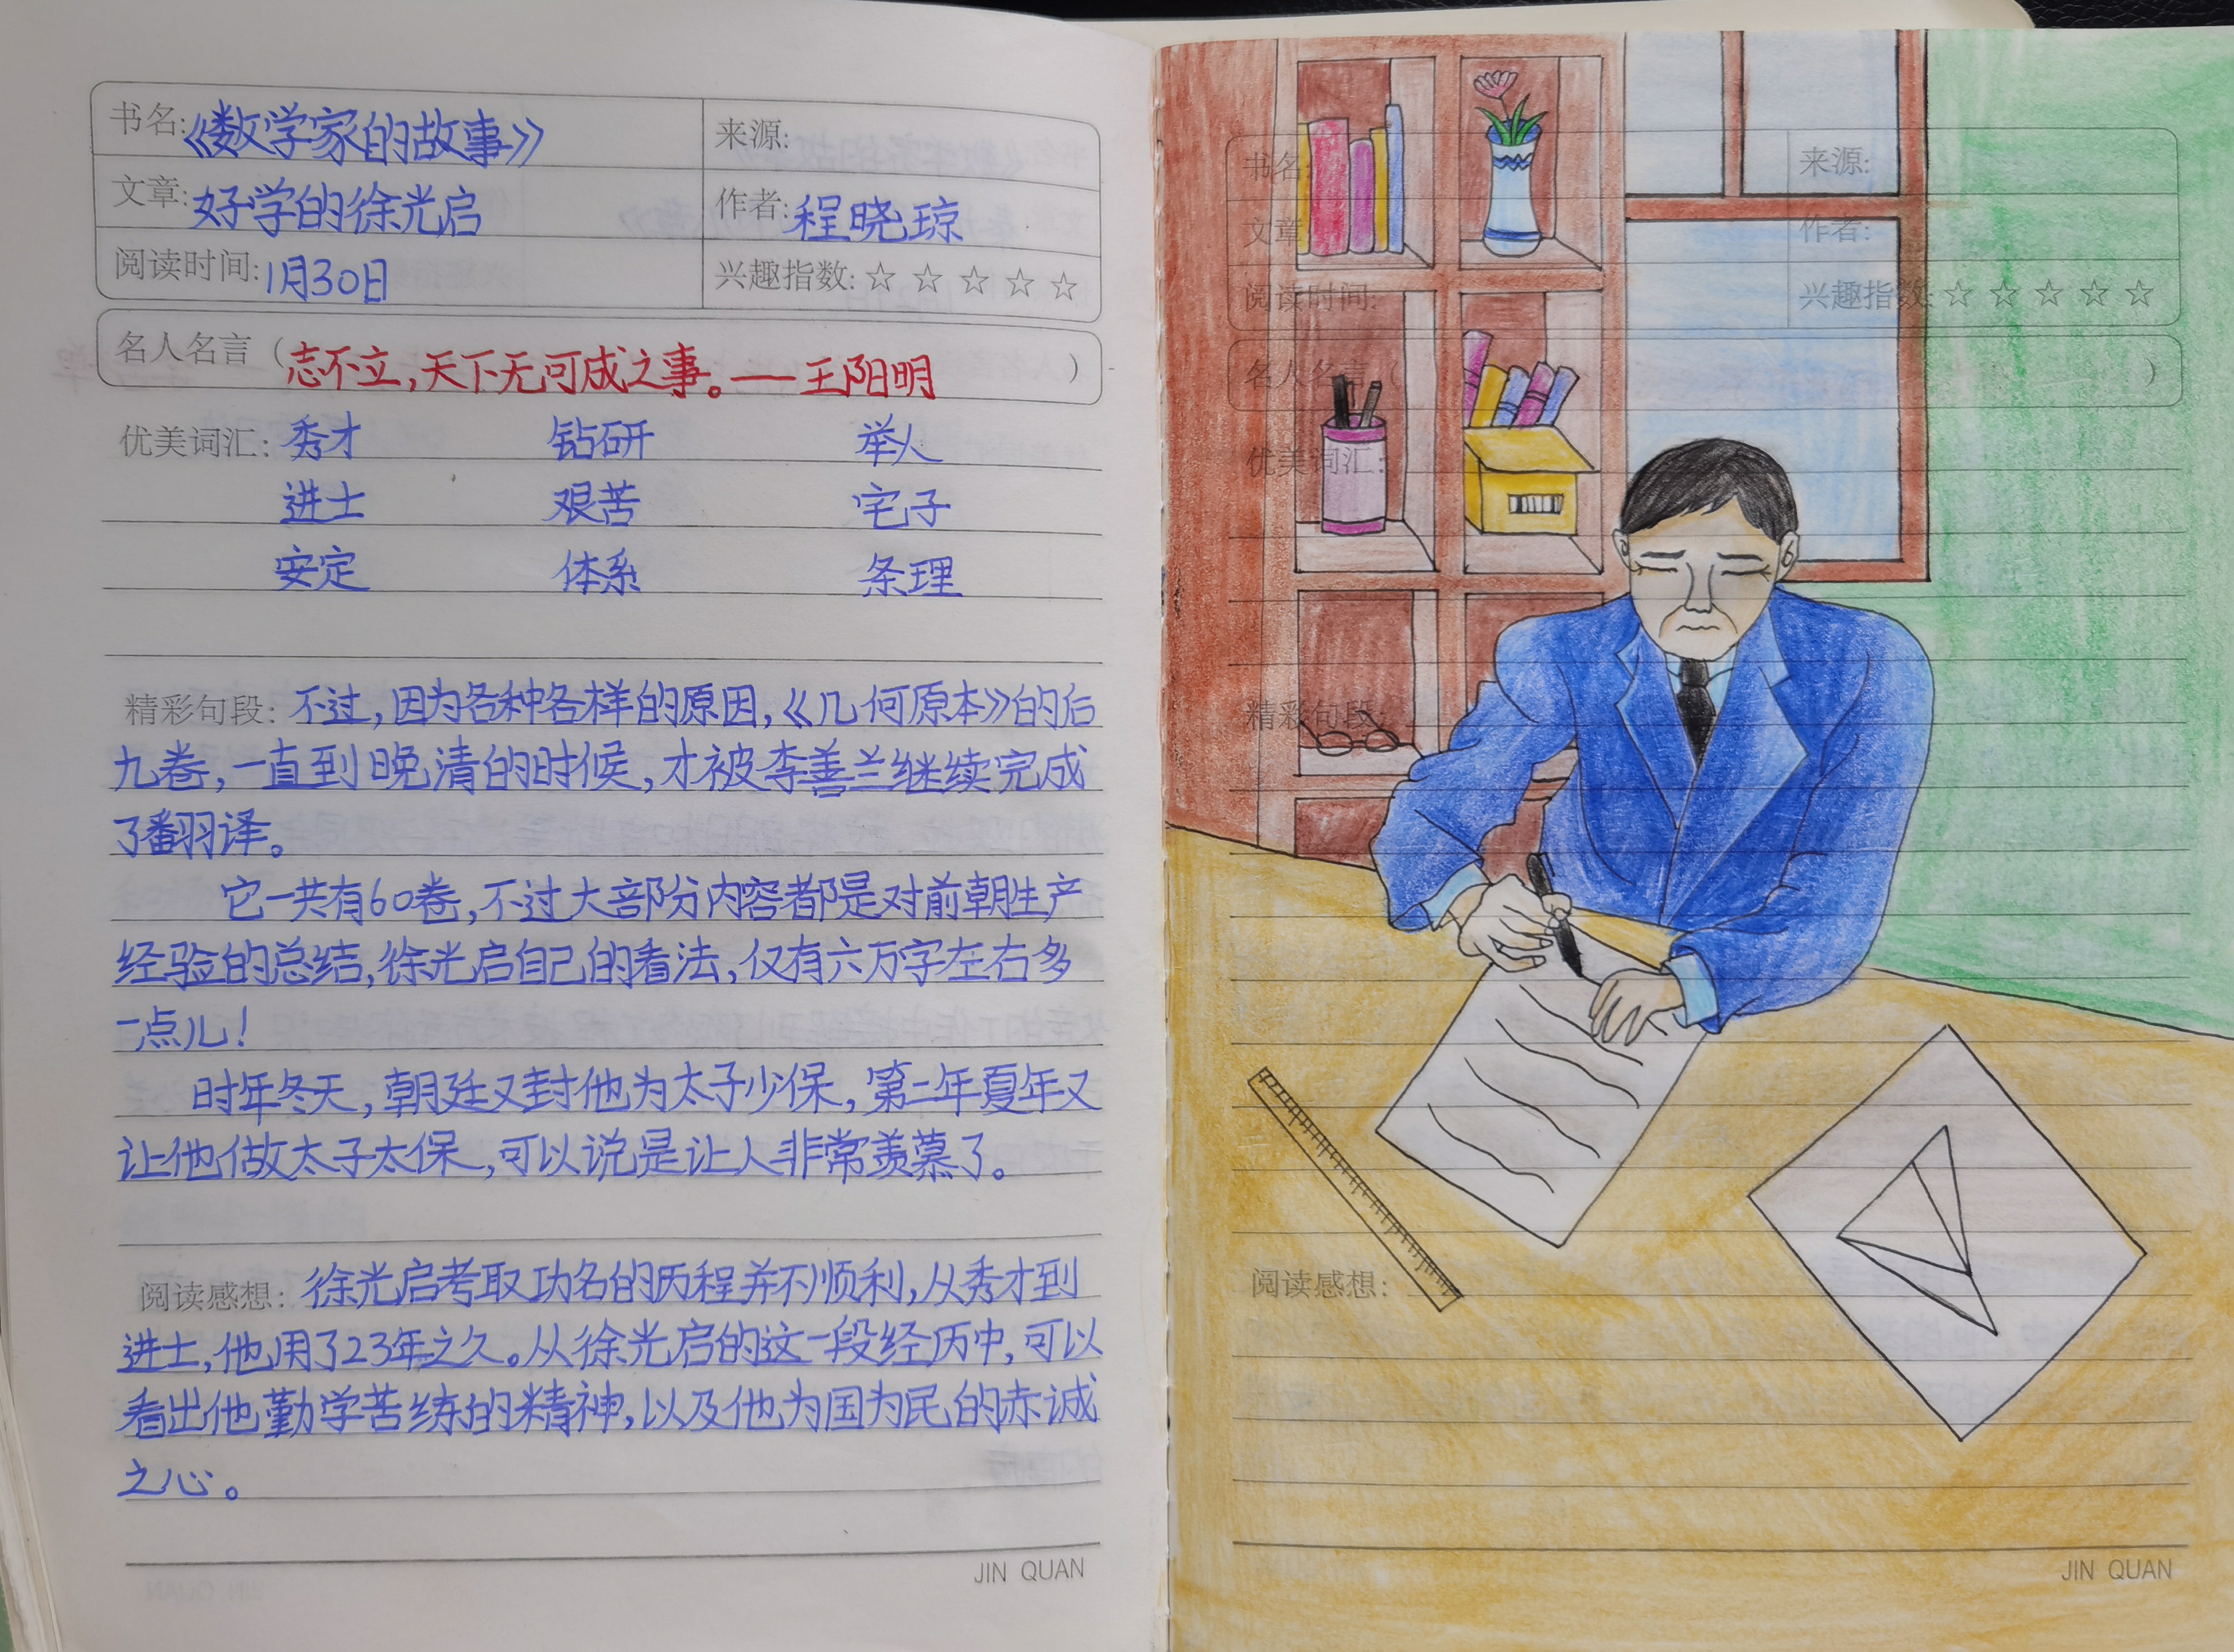 书名:《数学家的故事》
来源:
文章:好学的徐光启
作者:程晓琼
阅读时间:1月30日
兴趣指数:☆ ☆ ☆ ☆ ☆
名人名言(志不立,天下无可成之事。——王阳明)
优美词汇:秀才 钻研 举人
进士 艰苦 宅子
安定 体系 条理
精彩句段:不过,因为各种各样的原因,《几何原本》的后
九卷,一直到晚清的时候,才被李善兰继续完成
了翻译。
它一共有60卷,不过大部分内容都是对前朝生产
经验的总结,徐光启自己的看法,仅有六万字左右多
一点儿!
时年冬天,朝廷又封他为太子少保,第二年夏年又
让他做太子太保,可以说是让人非常羡慕了。
阅读感想:徐光启考取功名的历程并不顺利,从秀才到
进士,他用了23年之久。从徐光启的这一段经历中,可以
看出他勤学苦练的精神,以及他为国为民的赤诚
之心。
JIN QUAN
书名:
来源:
文章
作者:
阅读时间:
兴趣指数:☆ ☆ ☆ ☆ ☆
名人名言( )
优美词汇:
精彩句段:
阅读感想:
JIN QUAN